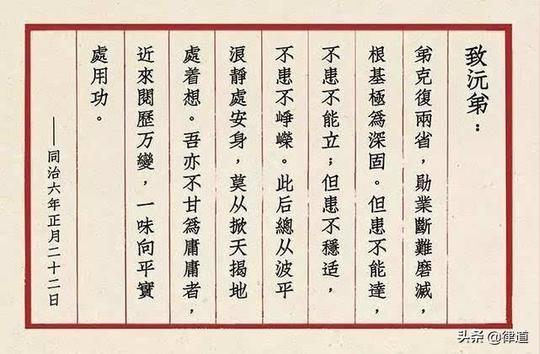 致沅弟：
弟克復兩省，勛業斷難磨滅，
根基極爲深固。但患不能達，
不患不能立；但患不穩适，
不患不崢嶸。此后總从波平
浪靜處安身，莫从掀天揭地
處着想。吾亦不甘爲庸庸者，
近來閱歷万變，一味向平實
處用功。
——同治六年正月二十二日
头条 @律道